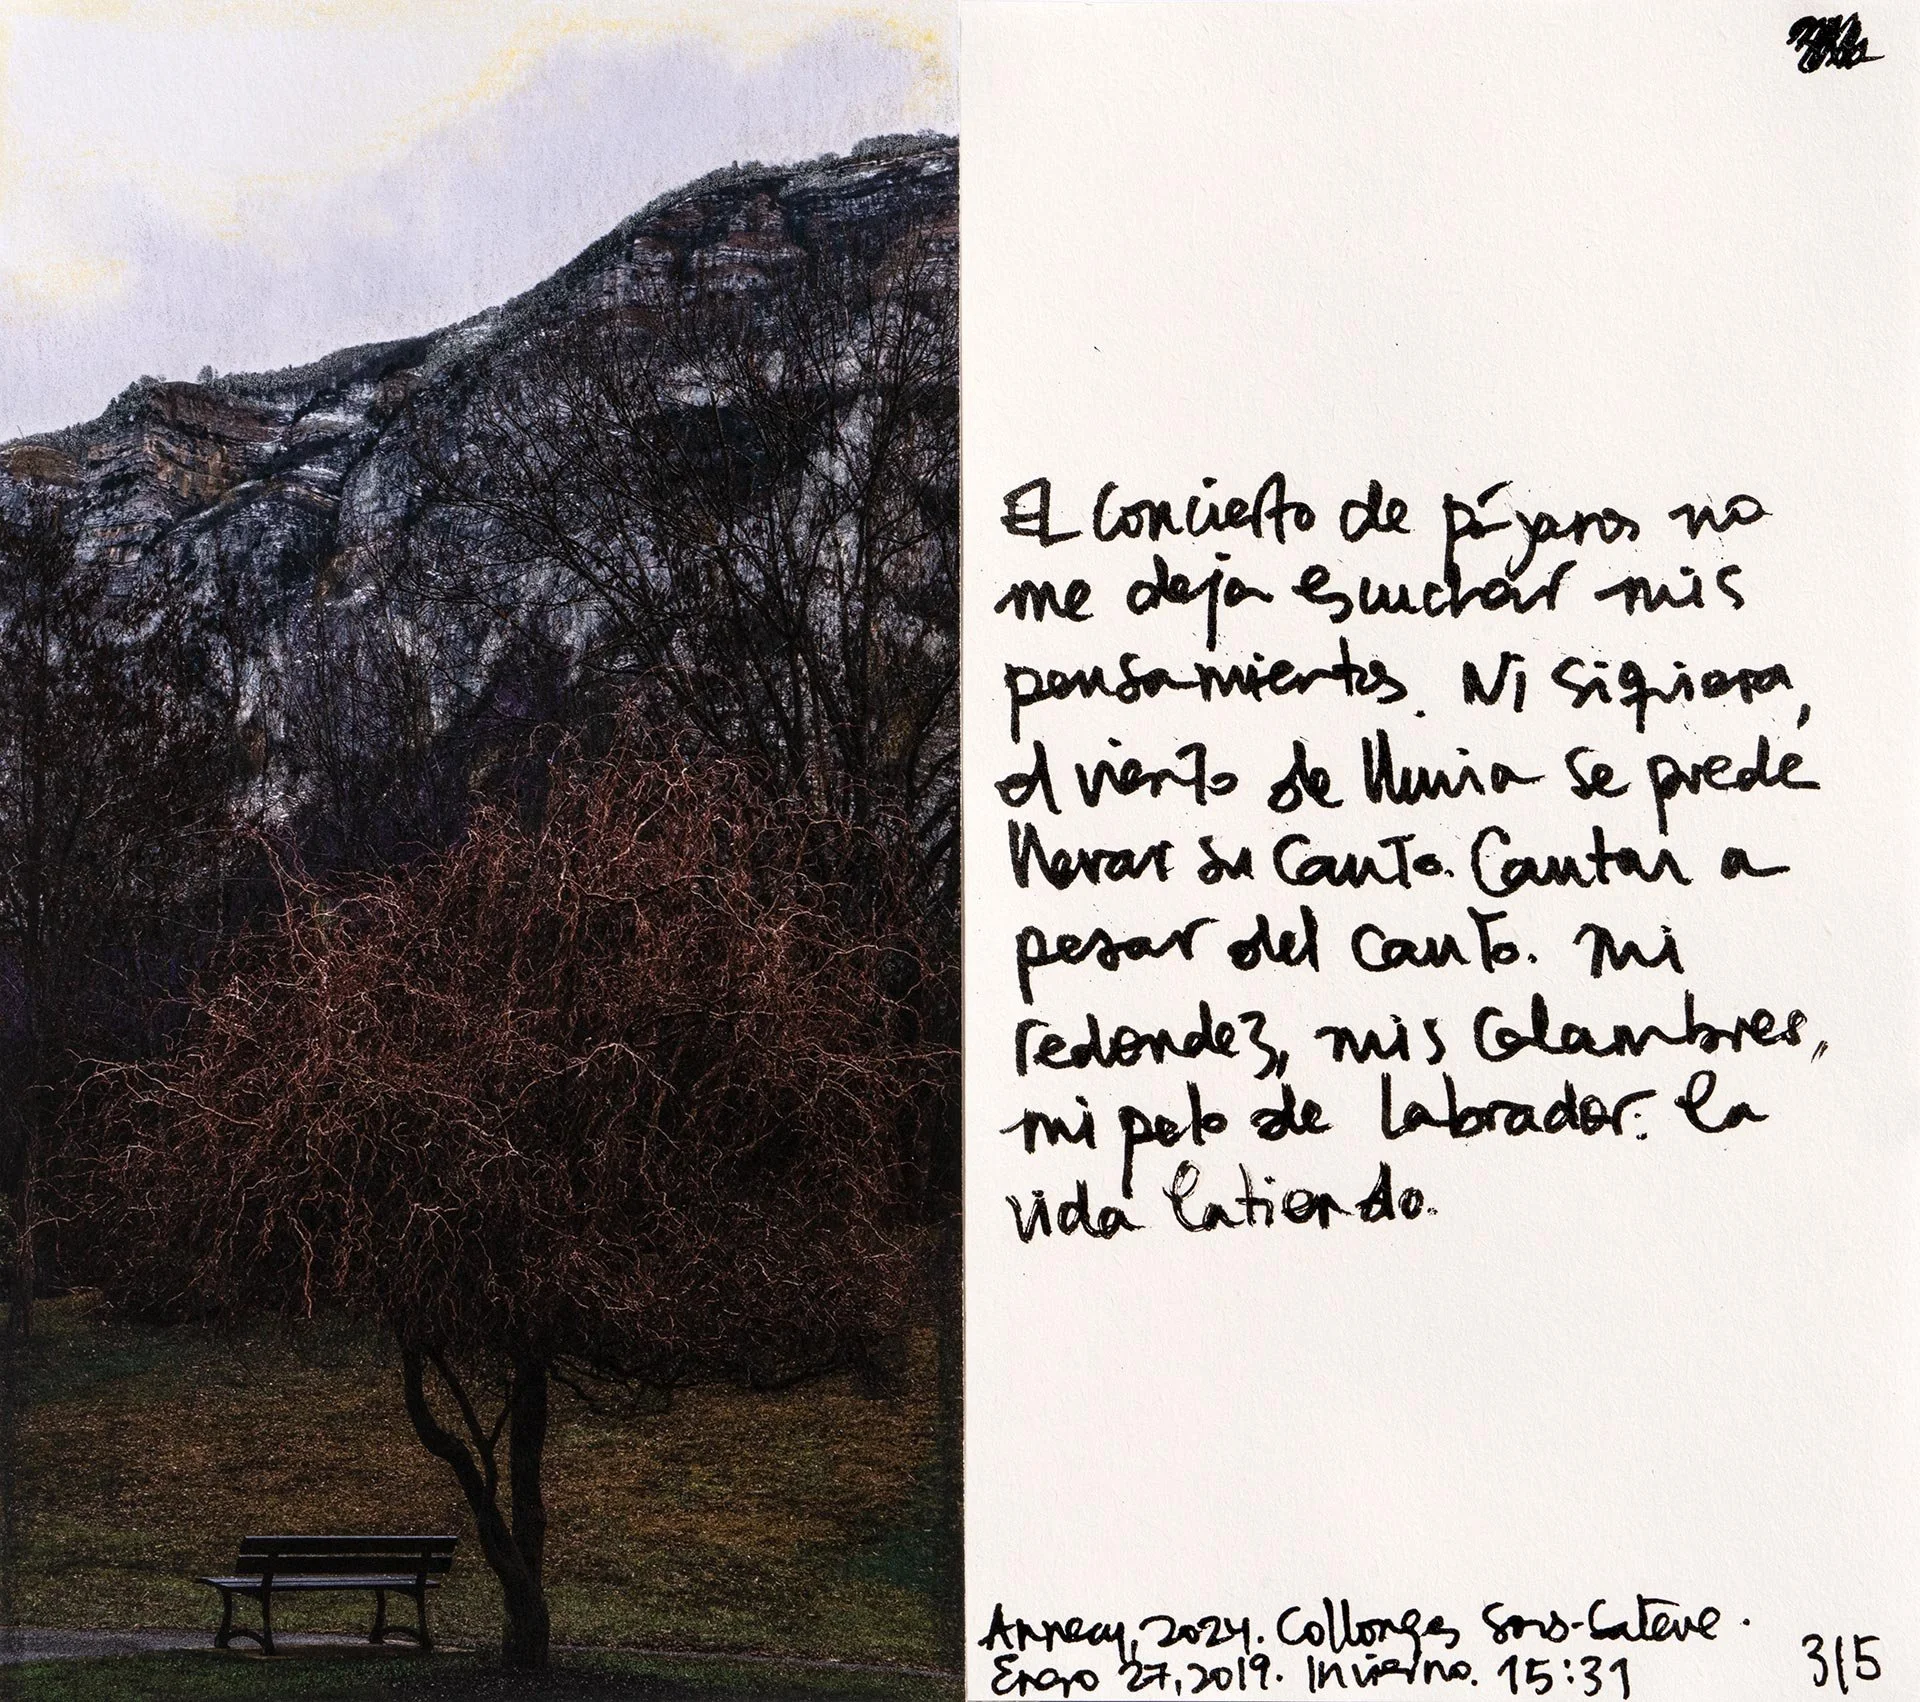 El concierto de pájaros no
me deja escuchar mis
pensamientos. Ni siquiera,
el viento de lluvia se puede
llevar su canto. Cantar a
pesar del canto. Mi
redondez, mis calambres,
mi pelo de labrador: la
vida latiendo.
Annecy, 2024. Collonges Sous-Salève.
Enero 27, 2019. Invierno. 15:31
3/5